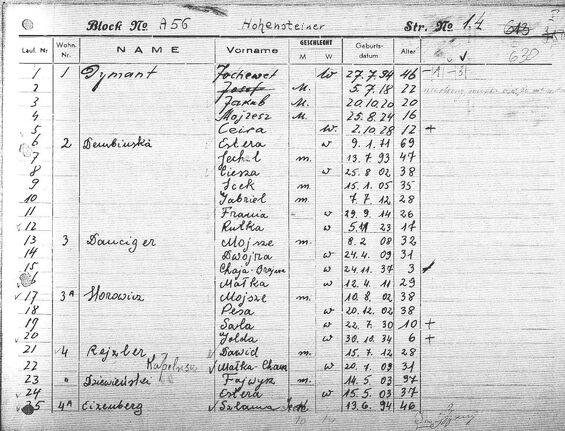 Block No A56 Hohensteiner Str. No 14 613
630
Lauf. Nr Wohn. Nr. NAME Vorname GESCHLECHT M W Geburts-datum Alter
1 1 Dymant Jochewet W 27.7.94 46
2 Josef M. 5.7.18 22
3 Jakub M. 20.10.20 20
4 Mojzesz M. 25.8.24 16
5 Ceira W. 2.10.28 12 +
6 2 Dembinska Estera W 9.1.71 69
7 Jechil m. 13.7.93 47
8 Ciesza W 25.8.02 38
9 Icek m. 15.1.05 35
10 Gabriel m. 7.7.12 28
11 Frania w 29.9.14 26
12 Rutka w 5.11 23 17
13 3 Danciger Mojsze m. 8.2 08 32
14 Dwojra w 24.4.09 31
15 Chaja- w 24.11.37 3
16 Małka w 12.4.11 29
17 3A Horowicz Mojsze m. 10.8.02 38
18 Pesa w 20.12.02 38
19 Sala w 22.7.30 10 +
20 Jolda w 30.10.34 6 +
21 4 Rejzler Dawid m. 15.7.12 28
22 Małka-Chana w 20.1.09 31
23 " Dziewieński m. 14.5.03 37
24 Estera w 15.5.03 37
25 4A Eizenberg Szlama 13.6.94 46